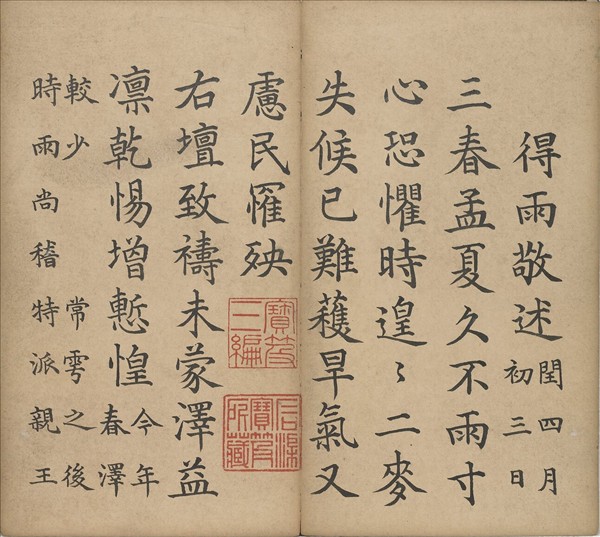 得雨敬述
閏四月
初三日
三春孟夏久不雨寸
心恐懼時遑〻二麥
失候已難穫旱氣又
慮民罹殃
寶笈三編
石渠寶笈所藏
右壇致禱未蒙澤益
凛乾惕增慙惶
今年
春澤
較少常雩之後
時雨尚稽特派親王